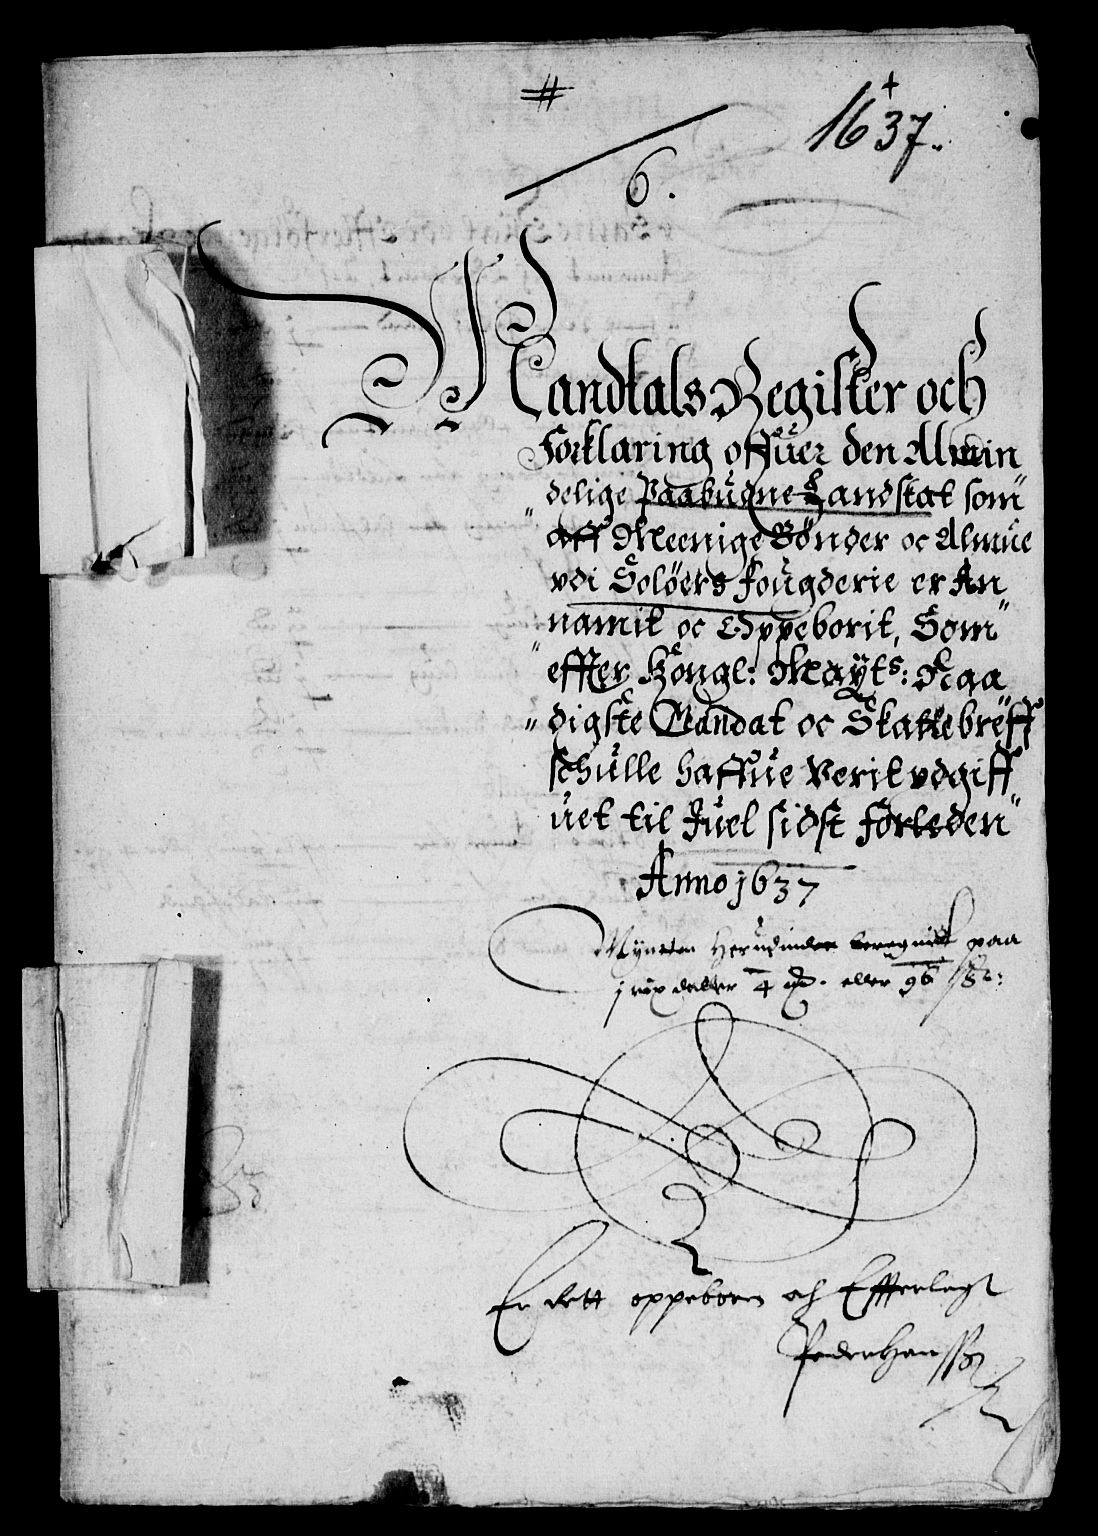 #
1637.
6.
Mandtals Register och
Forklaring offuer den Almin
delige Paabudne Landskat som
aff Meenige Bønder oc Almue
vdi Soløers fougderie er An
namit oc Oppeborit, Som
effter Kongl: Mayts: Naa
digste Mandat oc Skattebreff
schulle haffue Verit vdgiff
uet til Juel sidst forleden
Anno 1637
Mynten Herudinden beregnitt paa
j rix daller 4 eller 96
Er dett oppeboren och Efferlagt
Peder Hanssøn